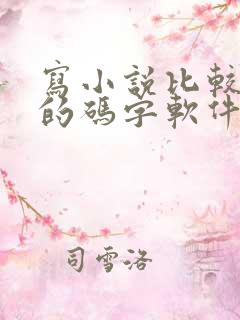 寫小說比較
的碼字軟件
司雪洛